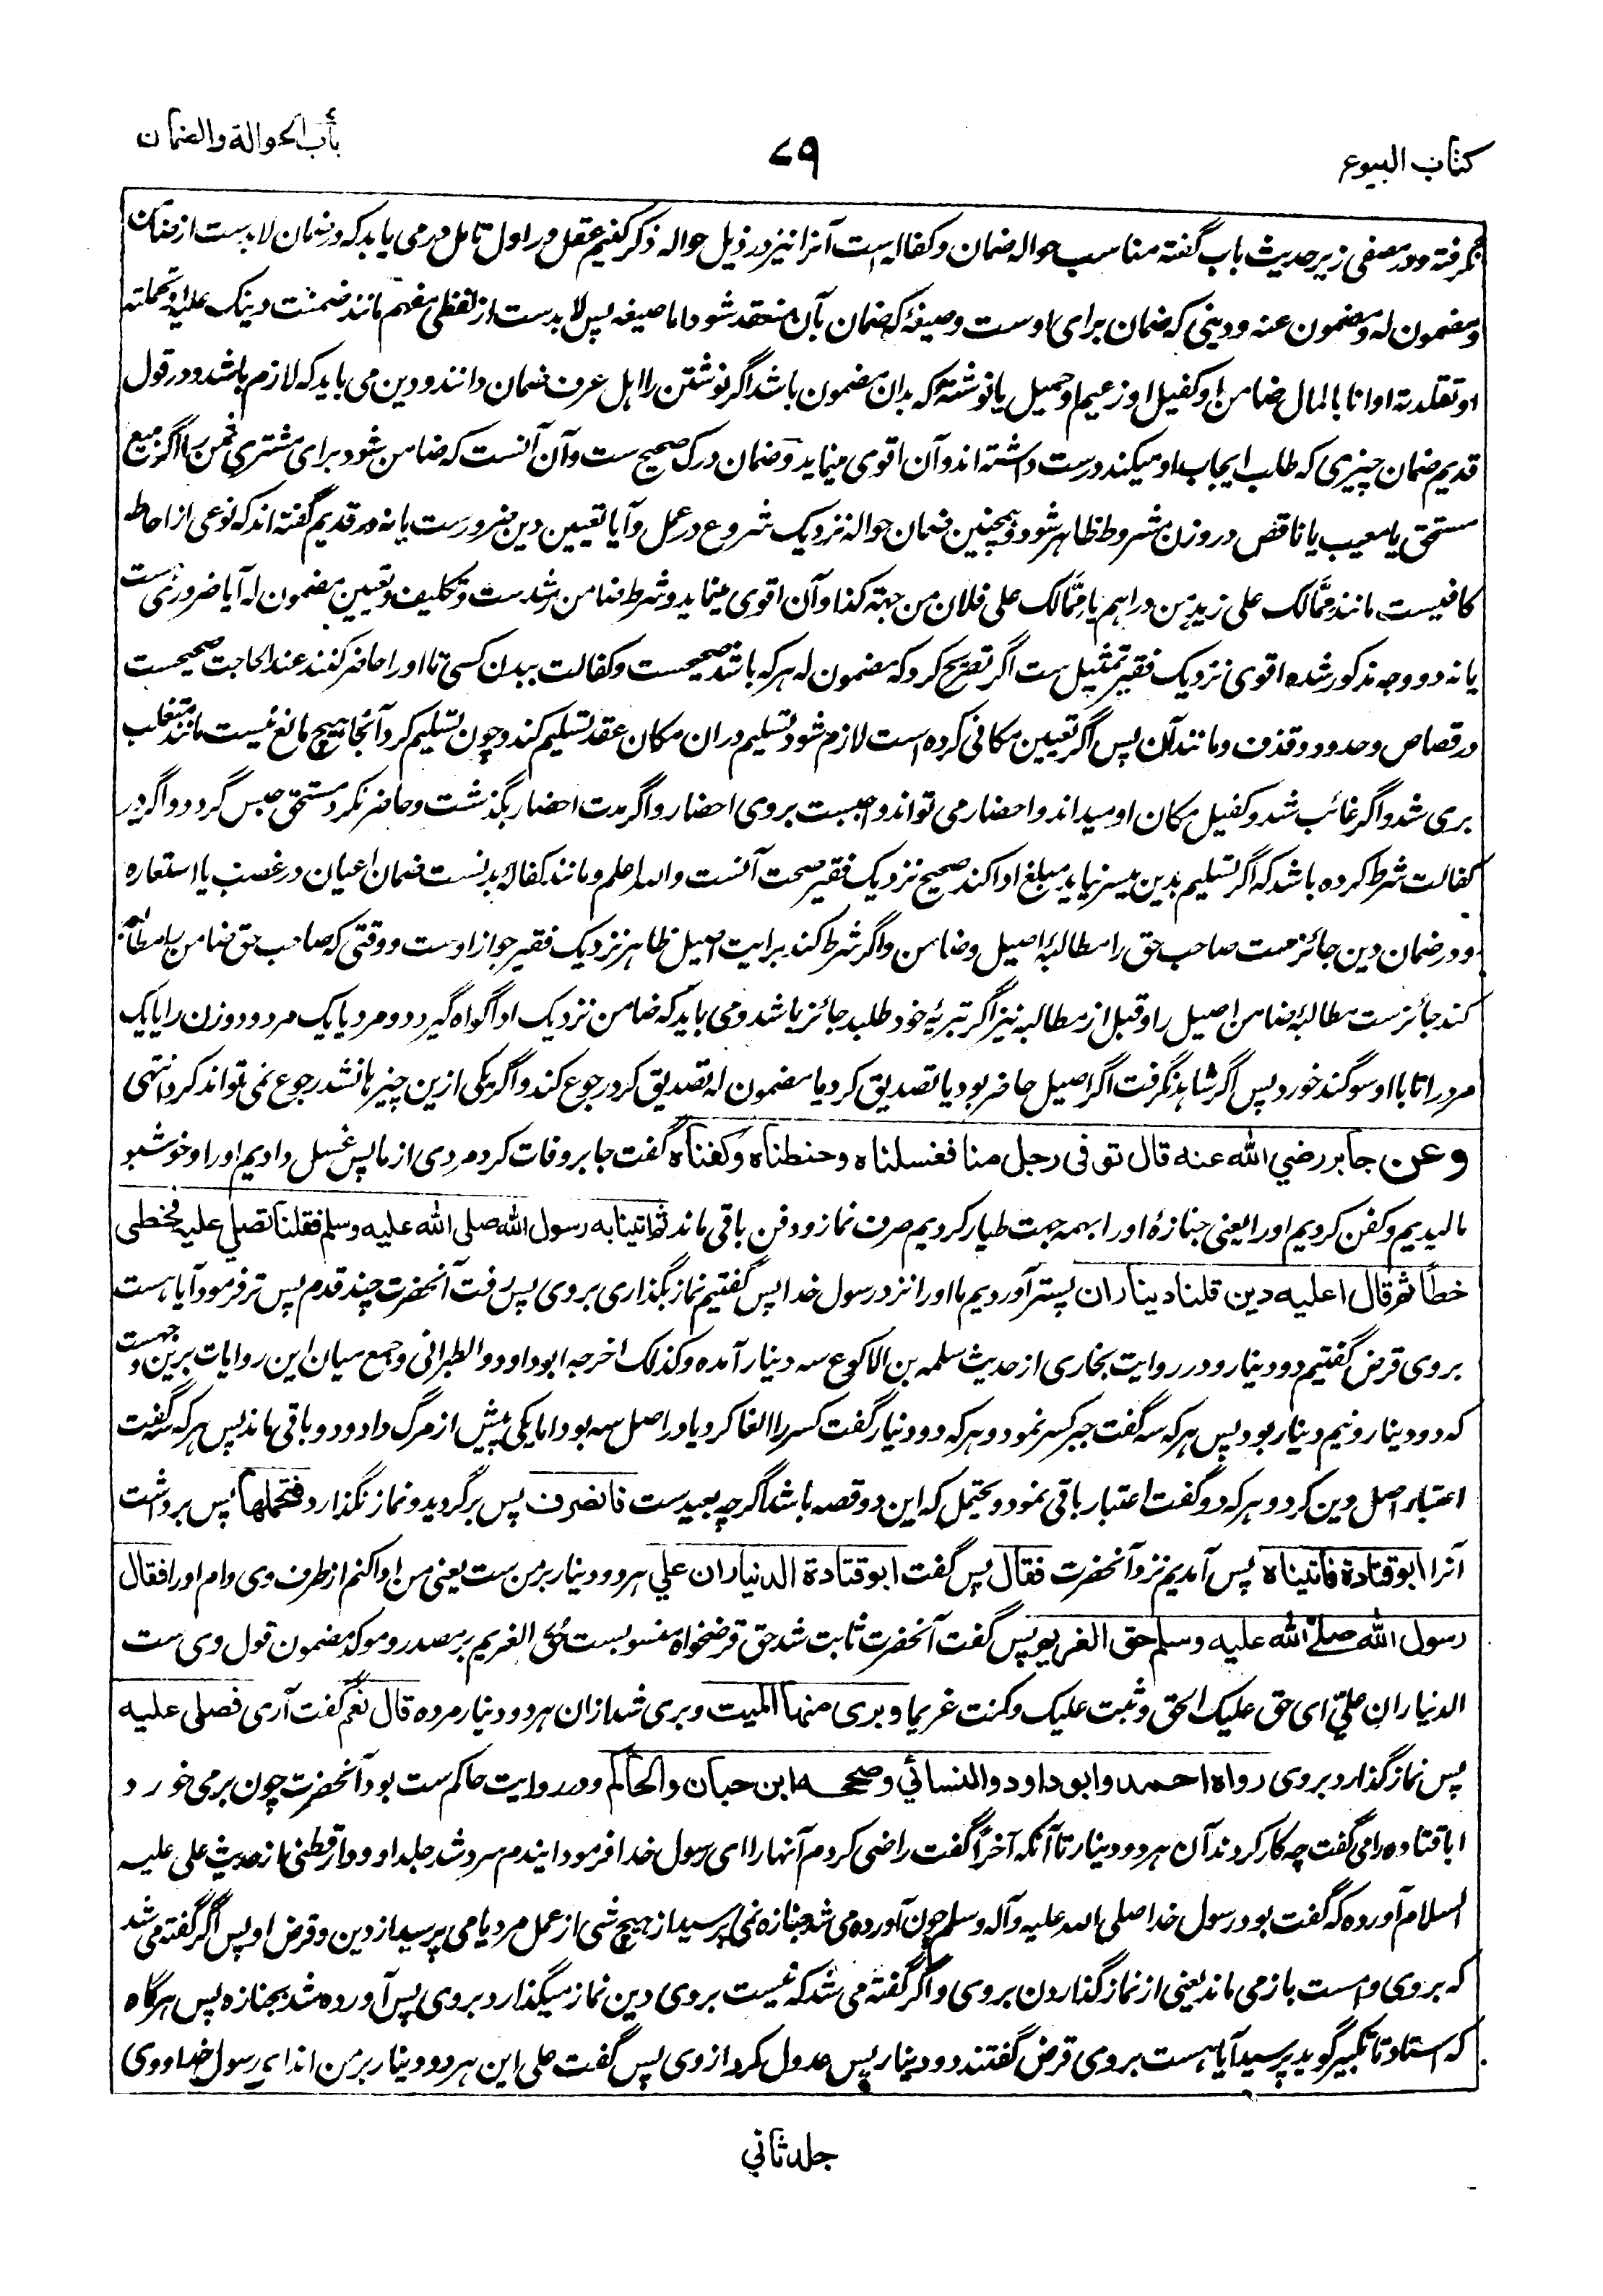 كتاب البيوع
٧٩
باب الحوالة والضمان
نگرفته و در مصفی زیر حدیث باب گفته مناسب حواله ضمان و کفاله است آنرا نیز در ذیل حواله ذکر کنیم عقل در اول تامل در می یابد که در ضمان لابدست از ضامن
و مضمون له و مضمون عنه و دینی که ضمان برای اوست و صیغهٔ که ضمان بآن منعقد شود اما صیغه پس لابدست از لفظی مفهم مانند ضمنت دینک علیه او تحملته
او تقلدته او انا بالمال ضامن او کفیل او زعیم او حمیل یا نوشتهٔ که بدان مضمون باشد اگر نوشتن را اهل عرف ضمان دانند و دین می باید که لازم باشد و در قول
قدیم ضمان چیزی که طلب ایجاب او میکند درست داشته اند و آن اقوی مینماید و ضمان درک صحیح ست و آن آنست که ضامن شود برای مشتری ثمن را اگر مبیع
مستحق یا معیب یا ناقص در وزن مشروط ظاهر شود و همچنین ضمان حواله نزدیک شروع در عمل و آیا تعیین دین ضرورست یا نه در قدیم گفته اند که نوعی از احاطه
کافیست مانند مما لک علی زید من دراهم یا مما لک علی فلان من جهة کذا و آن اقوی مینماید و شرط ضامن رشدست و تکلیف و تعیین مضمون له آیا ضروریست
یا نه دو وجه مذکور شده اقوی نزدیک فقیر تمثیل ست اگر تصریح کرد که مضمون له هر که باشد صحیحست و کفالت ببدن کسی تا او را حاضر کنند عند الحاجت صحیحست
در قصاص و حدود و قذف و مانند آن پس اگر تعیین مکانی کرده است لازم شود تسلیم در ان مکان عقد تسلیم کند و چون تسلیم کرد آنجا هیچ مانع نیست مانند متغلب
بری شد و اگر غائب شد و کفیل مکان او میداند و احضار می تواند واجبست بروی احضار و اگر مدت احضار بگذشت و حاضر نکرد مستحق حبس گردد و اگر در
کفالت شرط کرده باشد که اگر تسلیم بدین میسر نیاید مبلغ ادا کند صحیح نزدیک فقیر صحت آنست والله اعلم و مانند کفاله بدنست ضمان اعیان در غصب یا استعاره
و در ضمان دین جائزست صاحب حق را مطالبهٔ اصیل و ضامن و اگر شرط کند براءت اصیل ظاهر نزدیک فقیر جواز اوست و وقتی که صاحب حق ضامن را مطالبه
کند جائزست مطالبهٔ ضامن اصیل را و قبل از مطالبه نیز اگر تبریهٔ خود طلبد جائز باشد و می باید که ضامن نزدیک ادا گواه گیرد دو مرد یا یک مرد و دو زن را یا یک
مرد را تا با او سوگند خورد پس اگر شاهد نگرفت اگر اصیل حاضر بود یا تصدیق کرد یا مضمون له تصدیق کرد رجوع کند و اگر یکی ازین چیزها نشد رجوع نمی تواند کرد انتهی
وعن جابر رضي الله عنه قال توفى رجل منا فغسلناه وحنطناه وكفناه گفت جابر وفات کرد مردی از ما پس غسل دادیم او را و خوشبو
مالیدیم و کفن کردیم او را یعنی جنازهٔ او را بهمه جهت طیار کردیم صرف نماز و دفن باقی ماند ثم اتينا به رسول الله صلى الله عليه وسلم فقلنا تصلي عليه فخطى
خطأ ثم قال اعليه دين قلنا ديناران پستر آوردیم ما او را نزد رسول خدا پس گفتیم نماز بگذاری بروی پس رفت آنحضرت چند قدم پس تر فرمود آیا هست
بروی قرض گفتیم دو دینار و در روایت بخاری از حدیث سلمه بن الاکوع سه دینار آمده وکذلک اخرجه ابوداود و الطبرانی و جمع میان این روایات برین وجهست
که دو دینار و نیم دینار بود پس هر که سه گفت جبر کسر نمود و هر که دو دینار گفت کسر را الغا کرد یا در اصل سه بود اما یکی پیش از مرگ داد و دو باقی ماند پس هر که سه گفت
اعتبار اصل دین کرد و هر که دو گفت اعتبار باقی نمود و یحتمل که این دو قصه باشد اگرچه بعیدست فانصرف پس برگردید و نماز نگذارد فتحملها پس برداشت
آنرا ابو قتادة فاتيناه پس آمدیم نزد آنحضرت فقال پس گفت ابو قتادة الديناران علي هر دو دینار بر من ست یعنی من ادا کنم از طرف وی وام او را فقال
رسول الله صلى الله عليه وسلم حق الغريم پس گفت آنحضرت ثابت شد حق قرضخواه منسوبست حق الغریم بر مصدر و موکد مضمون قول وی ست
الدیناران علیّ ای حق علیک الحق و ثبت علیک و کنت غریما وبرى منهما الميت و بری شد ازان هر دو دینار مرده قال نعم گفت آری فصلى عليه
پس نماز گذارد بروی رواه احمد وابو داود والنسائي وصححه ابن حبان والحاكم و در روایت حاکم ست بود آنحضرت چون بر می خورد
اباقتاده را می گفت چه کار کردند آن هر دو دینار تا آنکه آخراً گفت راضی کردم آنها را ای رسول خدا فرمود ایندم سرد شد جلد او و دارقطنی از حدیث علی علیه
السلام آورده که گفت بود رسول خدا صلی الله علیه وآله وسلم چون آورده می شد جنازه نمی پرسید از هیچ شی از عمل مرد یا می پرسید از دین و قرض او پس اگر گفته می شد
که بروی وامست باز می ماند یعنی از نماز گذاردن بروی و اگر گفته می شد که نیست بروی دین نماز میگذارد بروی پس آورده شد بجنازه پس هرگاه
که استاد تا تکبیر گوید پرسید آیا هست بروی قرض گفتند دو دینار پس عدول کرد از وی پس گفت علی این هر دو دینار بر من اند ای رسول خدا و وی
جلد ثاني